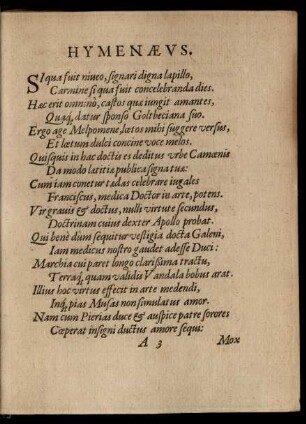 HYMENÆVS.
SI qua fuit niueo, signari digna lapillo,
Carmine si qua fuit concelebranda dies.
Hæc erit omnino, castos quæ iungit amantes,
Quaq́, datur sponso Goltbeciana suo.
Ergo age Melpomene, lætos mihi suggere versus,
Et lætum dulci concine voce melos.
Quisquis in hac doctis es deditus vrbe Camœnis
Da modo lætitiæ publica signa tuæ:
Cum iam conetur tædas celebrare iugales
Franciscus, medica Doctor in arte, potens.
Vir grauis & doctus, nulli virtute secundus,
Doctrinam cuius dexter Apollo probat.
Qui benè dum sequitur vestigia docta Galeni,
Iam medicus nostro gaudet adesse Duci:
Marchia cui paret longo clarissima tractu,
Terraq́, quam validis Vandala bobus arat.
Illius hoc virtus effecit in arte medendi,
Inq́, pias Musas non simulatus amor.
Nam cum Pierias duce & auspice patre sorores
Cœperat insigni ductus amore sequi:
A 3 Mox